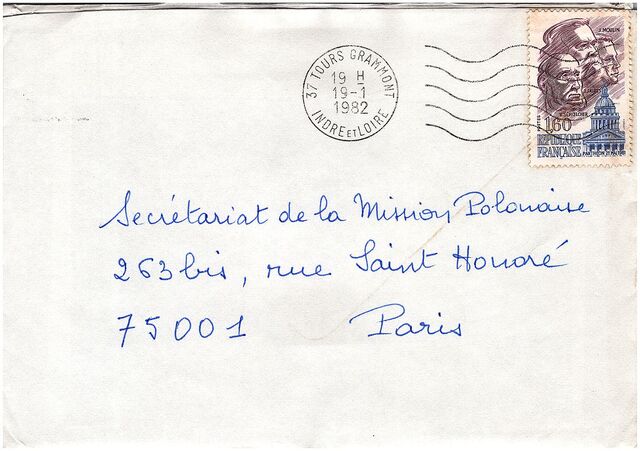 37 TOURS GRAMMONT
19 H
19-1
1982
INDRE ET LOIRE
J. MOULIN
1,60
REPUBLIQUE
FRANÇAISE
Secrétariat de la Mission Polonaise
263 bis, rue Saint Honoré
75001 Paris